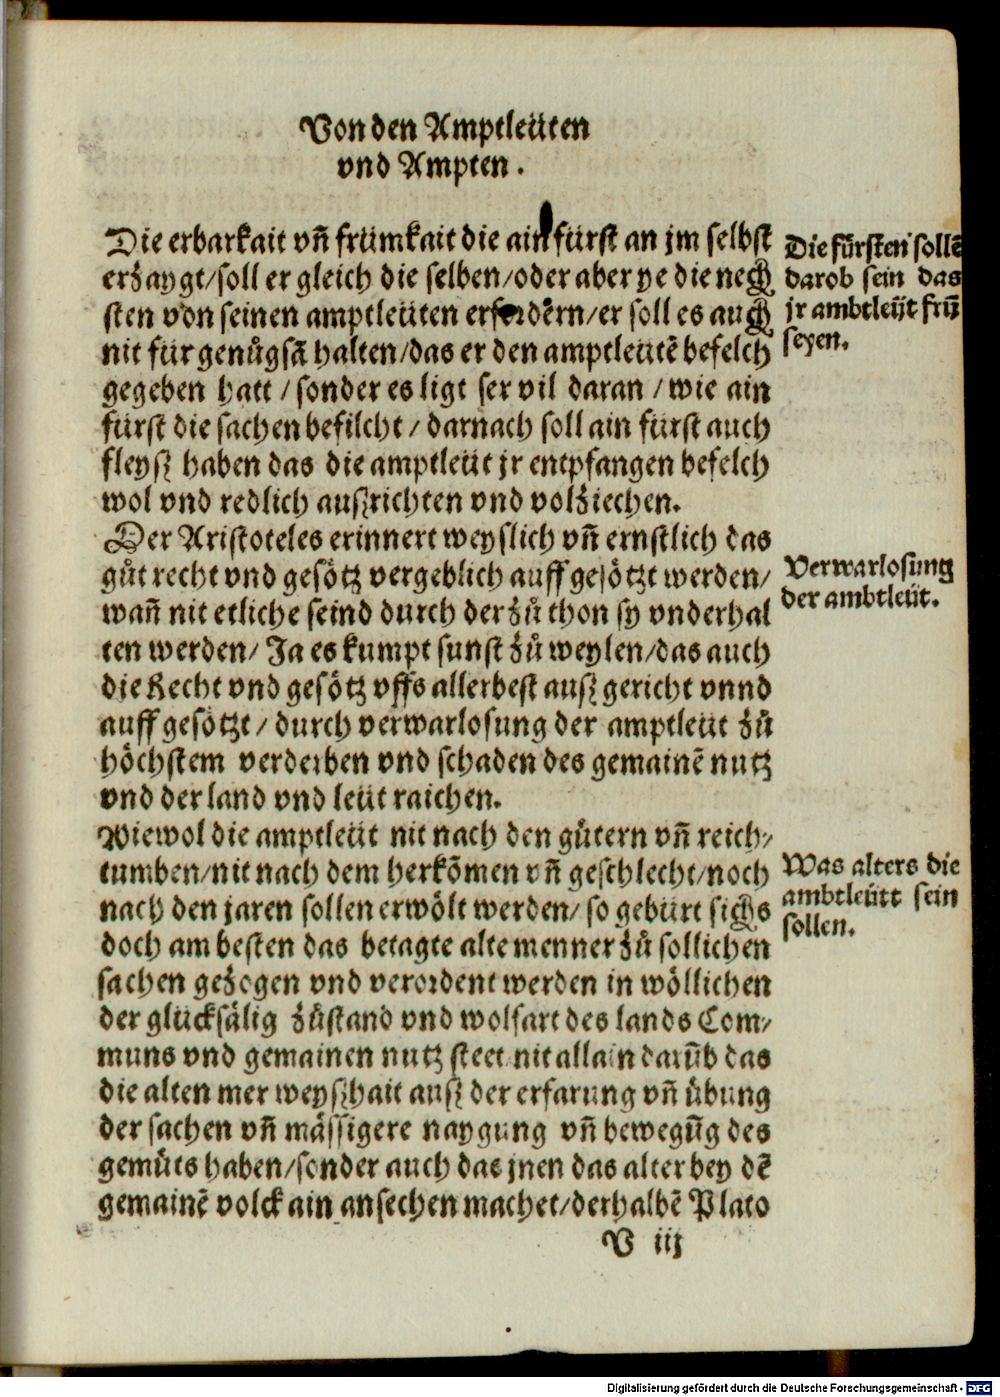 Von den Amptleüten
vnd Ampten.
Die erbarkait vñ frümkait die ain fürst an jm selbst
erzaygt/soll er gleich die selben/oder aber ye die nech
sten von seinen amptleüten erfordern/er soll es auch
nit für genůgsã halten/das er den amptleütẽ befelch
gegeben hatt/sonder es ligt ser vil daran/wie ain
fürst die sachen befilcht/darnach soll ain fürst auch
fleysz haben das die amptleüt jr entpfangen befelch
wol vnd redlich auszrichten vnd volziechen.
Die fürsten sollẽ
darob sein das
jr ambtleüt frũ
seyen.
Der Aristoteles erinnert weyslich vñ ernstlich das
gůt recht vnd gesötz vergeblich auffgesötzt werden/
wañ nit etliche seind durch der zů thon sy vnderhal
ten werden/Ja es kumpt sunst zů weylen/das auch
die Recht vnd gesötz vffs allerbest ausz gericht vnnd
auffgesötzt/durch verwarlosung der amptleüt zů
höchstem verderben vnd schaden des gemainẽ nutz
vnd der land vnd leüt raichen.
Verwarlosung
der ambtleüt.
Wiewol die amptleüt nit nach den gůtern vñ reich/
tumben/nit nach dem herkõmen vñ geschlecht/noch
nach den jaren sollen erwölt werden/so gebürt sichs
doch am besten das betagte alte menner zů sollichen
sachen gezogen vnd verordent werden in wöllichen
der glücksälig zůstand vnd wolfart des lands Com/
muns vnd gemainen nutz steet nit allain darũb das
die alten mer weyszhait ausz der erfarung vñ übung
der sachen vñ mässigere naygung vñ bewegũg des
gemůts haben/sonder auch das jnen das alter bey dẽ
gemainẽ volck ain ansechen machet/derhalbẽ Plato
Was alters die
ambtleütt sein
sollen.
V iij
Digitalisierung gefördert durch die Deutsche Forschungsgemeinschaft - DFG